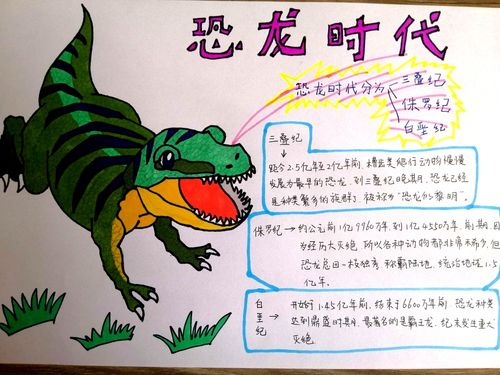 恐龙时代
恐龙时代分为
三叠纪
侏罗纪
白垩纪
三叠纪
距今2.5亿年至2亿年前
发展为最早的恐龙,到三叠纪晚期,恐龙已经
是种类繁多的族群了,被称为“恐龙的黎明”。
侏罗纪→约公元前1亿9960万年,到1亿4550万年,前期,因
为经历大灭绝,所以各种动物都非常稀少,但
恐龙总目一枝独秀,称霸陆地,统治地球1.5
亿年。
白垩纪
开始于1.45亿年前,结束于6600万年前,恐龙种类
达到鼎盛时期,最著名的是霸王龙,纪末发生重大
灭绝